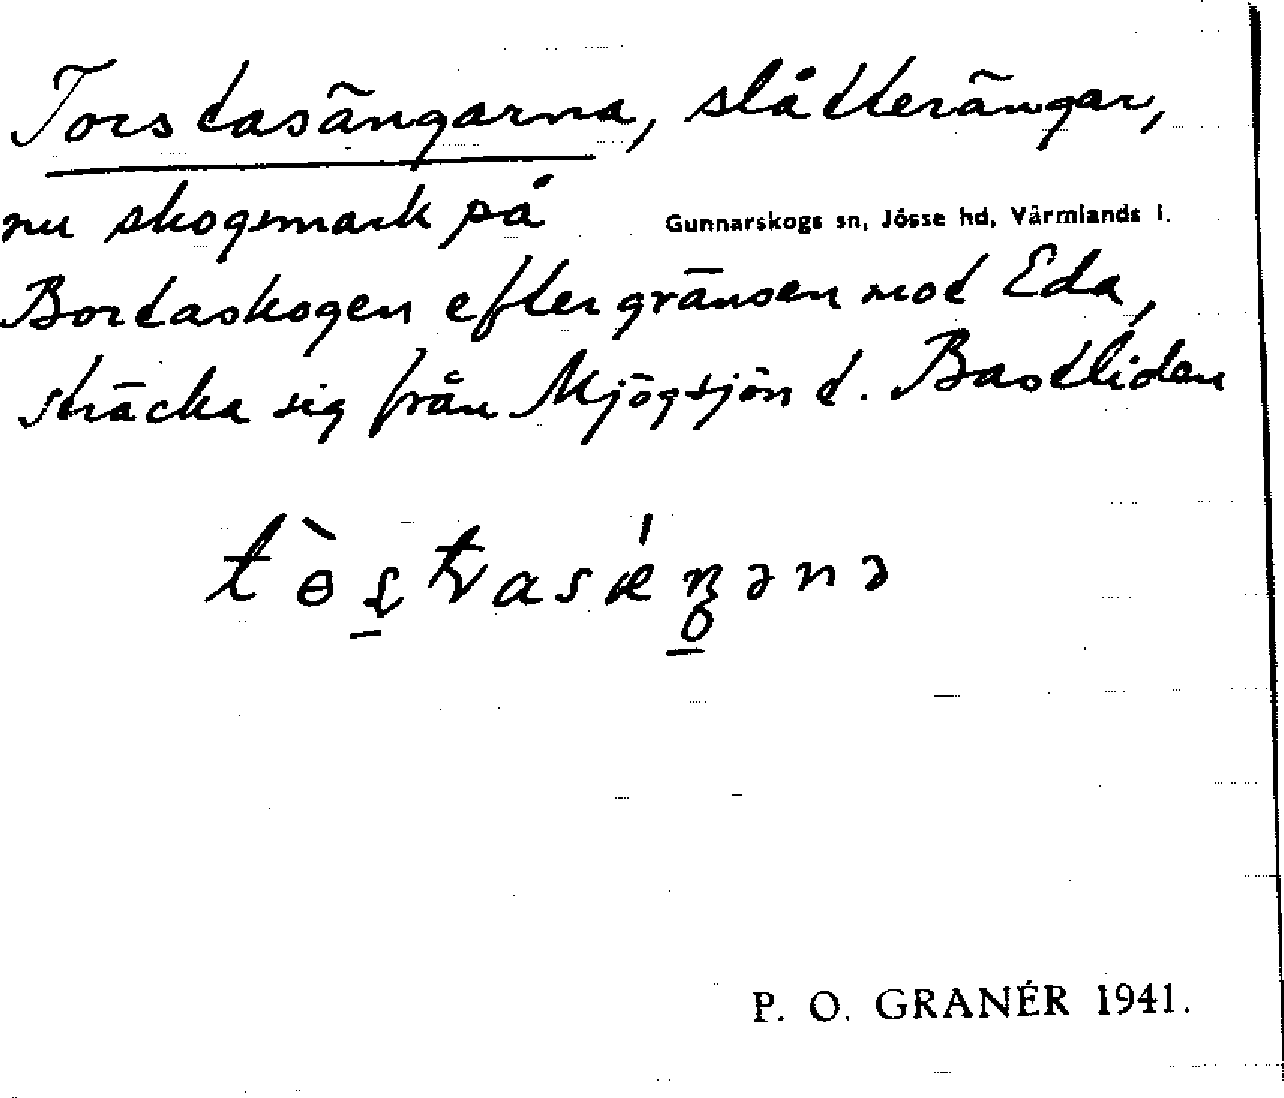 Torstasängarna, slåtterängar,
nu skogsmark på
Gunnarskogs sn, Jösse hd, Värmlands l.
Bortaskogen efter gränsen mot Eda,
sträcka sig från Mjögsjön t. Bastliden
P. O. GRANÉR 1941.